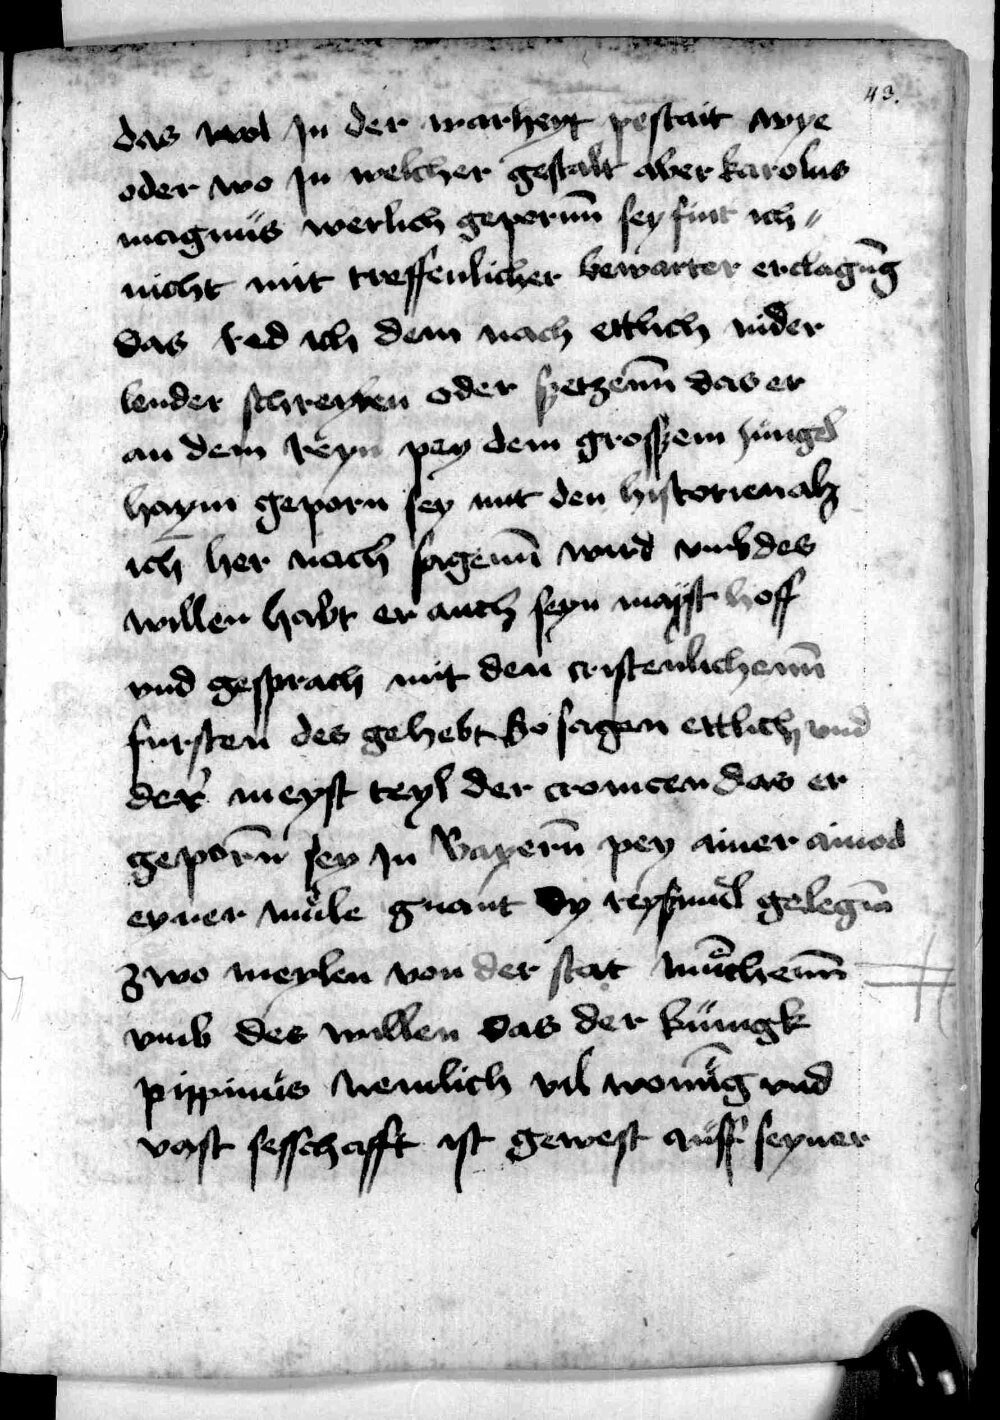 43.
das wol Jn der warheyt pestait wye
oder wo Jn welcher gestalt aber karolus
magnüs werlich gepernn̄ sey fint ich //
nicht mit treffenlicher bewarter erclagūg
Das red ich dem nach ettlich nider
lender schreyben oder setzenn̄ das er
an dem reyn pey dem grossem Jüngel
haym geporn sey mit den historien alz
ich her nach sagenn̄ wird vmb des
willen habt er auch seyn mayst hoff
vnd gesprach mit den cristenlichenn̄
fursten des gehebt So sagen ettlich vnd
der meyst teyl der cronicen das er
geporn̄ sey Jn Bayern̄ pey ainer ainod
eyner müle gnant Dy reysmül gelegn̄
zwo meylen von der stat münchenn̄
vmb des willen das der künigk
pippinüs nemlich vil wonūg vnd
vast sesschafft ist gewest auff seyner